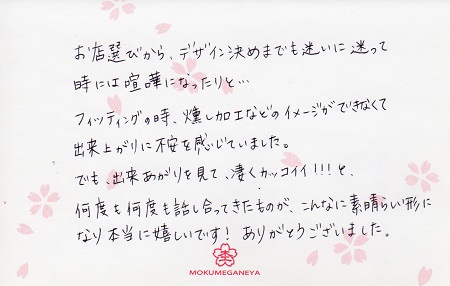 お店選びから、デザイン決めまでも迷いに迷って
時には喧嘩になったりと…
フィッティングの時、燻し加工などのイメージができなくて
出来上がりに不安を感じていました。
でも、出来あがりを見て、凄くカッコイイ!!!と、
何度も何度も話し合ってきたものが、こんなに素晴らしい形に
なり本当に嬉しいです！ありがとうございました。
MOKUMEGANEYA